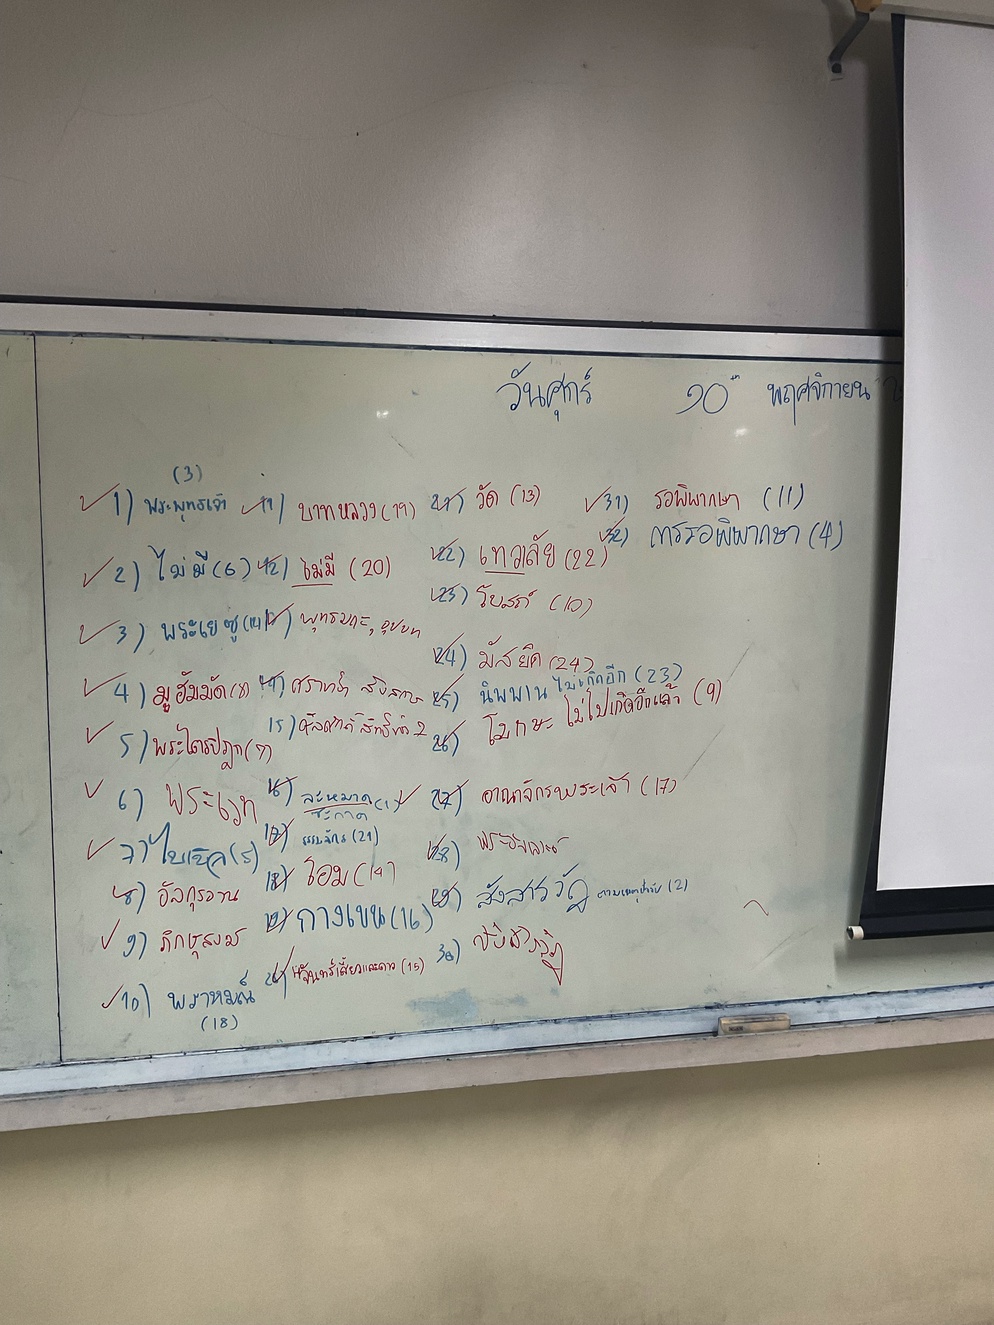 วันศุกร์ ๑๐ พฤศจิกายน
(3)
1) พระพุทธเจ้า
2) ไม่มี (6)
3) พระเยซู
4) มูฮัมมัด
5) พระไตรปิฎก (7)
6) พระเวท
7) ไบเบิล (5)
8) อัลกุรอาน
9) ภิกษุสงฆ์
10) พราหมณ์
(18)
11) บาทหลวง (19)
12) ไม่มี (20)
15)
16) ละหมาด (1)
ซะกาต
17) ธรรมจักร (21)
18) โอม (14)
19) กางเขน (16)
20) พระจันทร์เสี้ยวและดาว (15)
21) วัด (13)
22) เทวาลัย (22)
23) โบสถ์ (10)
24) มัสยิด (24)
25) นิพพาน ไม่เกิดอีก (23)
26) โมกษะ ไม่ไปเกิดอีกแล้ว (9)
27) อาณาจักรพระเจ้า (17)
28)
29) สังสารวัฏ (2)
30)
31) รอพิพากษา (11)
32) การรอพิพากษา (4)